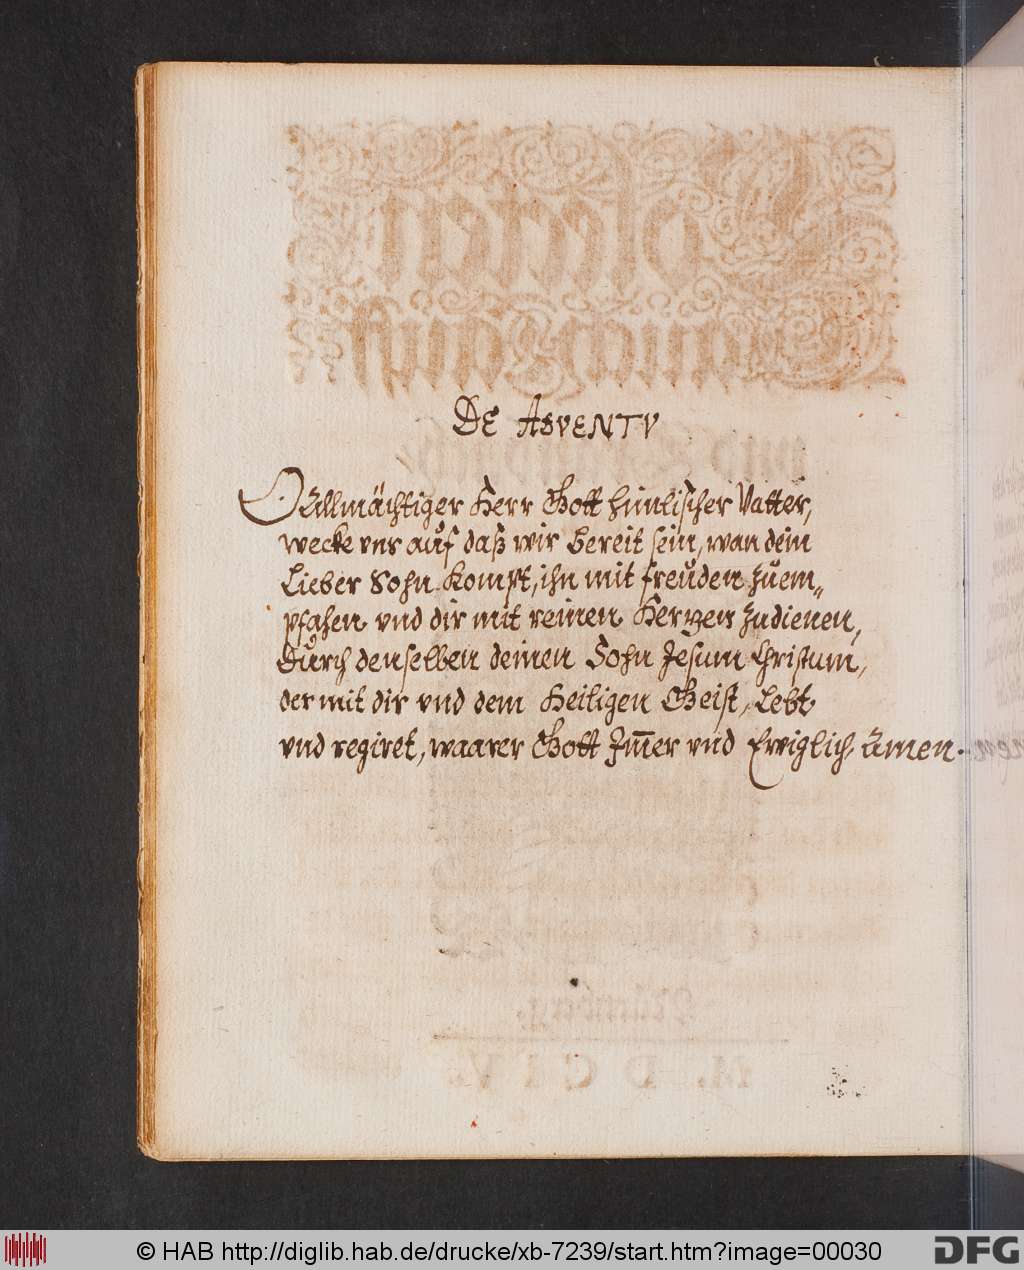 DE ADVENTV
O Allmächtiger Herr Gott himlischer Vatter,
wecke vns auf daß wir bereit sein, wan dein
Lieber Sohn kompt, ihn mit freuden zuem„
pfahen vnd dir mit reinen Hertzen zudienen,
Durch denselben deinen Sohn Jesum Christum,
der mit dir vnd dem Heiligen Geist, Lebt
vnd regiret, waarer Gott Im̄er vnd Ewiglich, amen.
M. D C I V.
© HAB http://diglib.hab.de/drucke/xb-7239/start.htm?image=00030
DFG